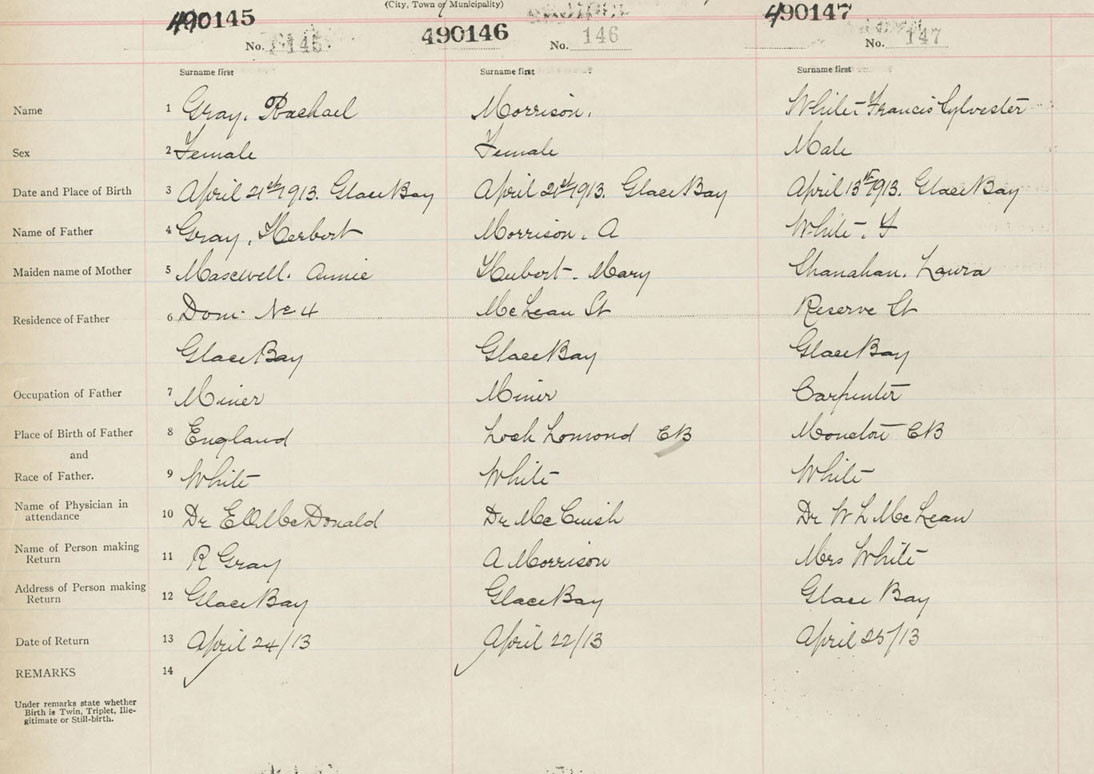 (City, Town or Municipality)
490145 490146 490147
No. 145 No. 146 No. 147
Surname first Surname first Surname first
Name 1 Gray, Rachael Morrison. White Francis Sylvester
Sex 2 Female Female Male
Date and Place of Birth 3 April 21st 1913. Glace Bay April 21st 1913. Glace Bay April 13th 1913. Glace Bay
Name of Father 4 Gray, Herbert Morrison. A White. F
Maiden name of Mother 5 Maxwell. Annie Hubert. Mary Shanahan. Laura
Residence of Father 6 Dom. No 4 McLean St Reserve St
Glace Bay Glace Bay Glace Bay
Occupation of Father 7 Miner Miner Carpenter
Place of Birth of Father 8 England Loch Lomond CB CB
and
Race of Father. 9 White White White
Name of Physician in
attendance 10 Dr McDonald Dr McCuish Dr W L McLean
Name of Person making
Return 11 R Gray A Morrison Mrs White
Address of Person making
Return 12 Glace Bay Glace Bay Glace Bay
Date of Return 13 April 24/13 April 22/13 April 25/13
REMARKS 14
Under remarks state whether
Birth is Twin, Triplet, Ille-
gitimate or Still-birth.